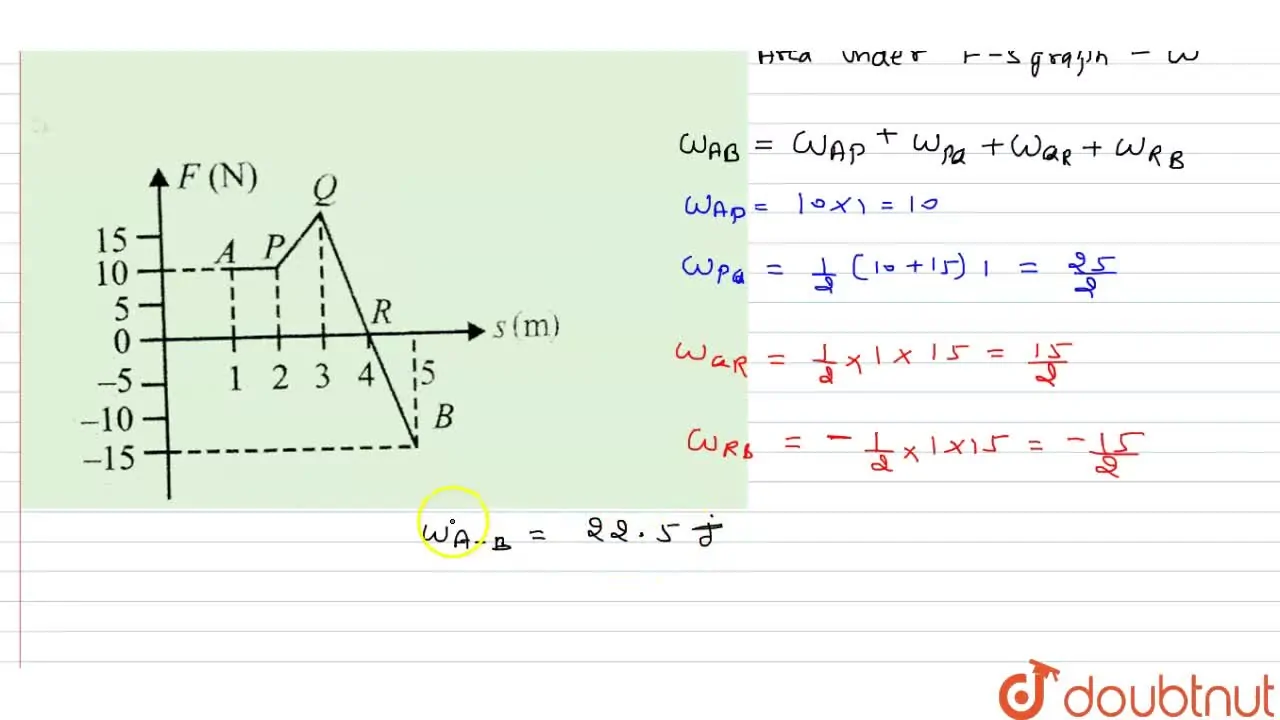 Area under F-S graph = W
F (N)
Q
15
A P
10
5
R
0
s (m)
1 2 3 4 5
-5
-10
B
-15
WAB = WAP + WPQ + WQR + WRB
WAP = 10 × 1 = 10
WPQ = 1/2 (10 + 15) 1 = 25/2
WQR = 1/2 × 1 × 15 = 15/2
WRB = - 1/2 × 1 × 15 = -15/2
WA-B = 22.5 j
doubtnut